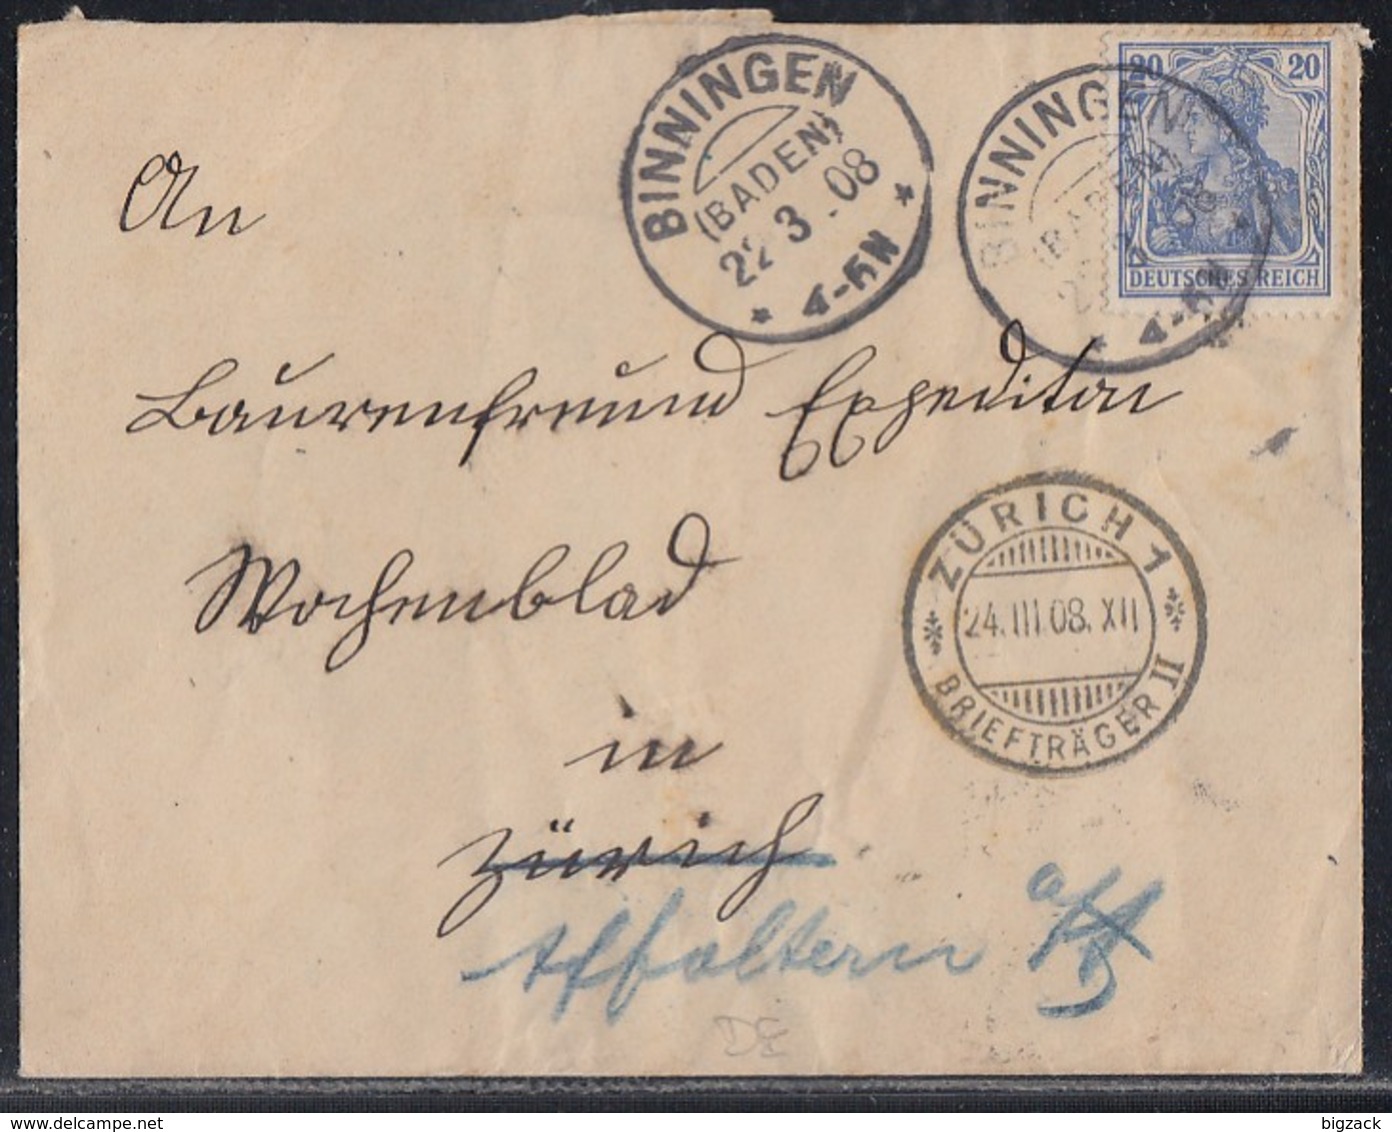 BINNINGEN
(BADEN)
22 3.08
* 4-5N *
BINNINGEN
(BADEN)
* 4-5N *
20 20
DEUTSCHES REICH
An
Baurenfreund Expediton
Wochenblad
in
Zürich
ZÜRICH 1
24.III.08.XII
BRIEFTRÄGER II
Affoltern a/A
DE
bigzack